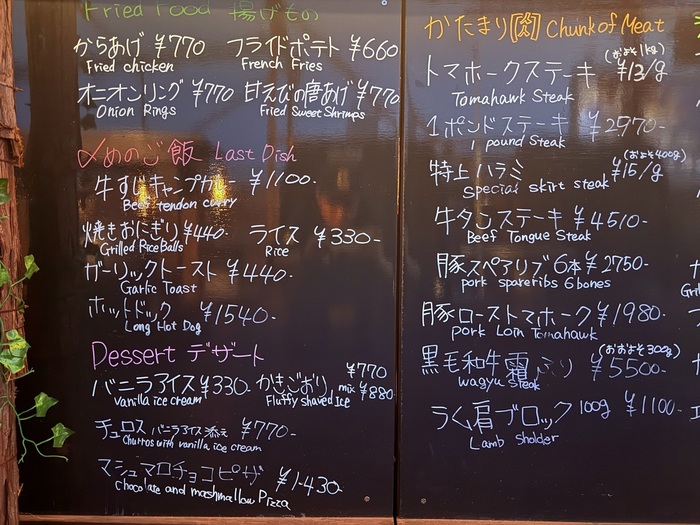 Fried Food 揚げもの
からあげ ¥770 フライドポテト ¥660
Fried chicken French Fries
オニオンリング ¥770 甘えびの唐あげ ¥770
Onion Rings Fried Sweet Shrimps
〆めのご飯 Last Dish
牛すじキャンプカレー ¥1100-
Beef tendon curry
焼きおにぎり ¥440- ライス ¥330-
Grilled Rice Balls Rice
ガーリックトースト ¥440-
Garlic Toast
ホットドック ¥1540-
Long Hot Dog
Dessert デザート
バニラアイス ¥330- かきごおり ¥770
mix ¥880
vanilla ice cream Fluffy shaved Ice
チュロス バニラアイス添え ¥770-
Churros with vanilla ice cream
マシュマロチョコピザ ¥1430-
chocolate and marshmallow Pizza
かたまり肉 Chunk of Meat
(およそ1kg)
トマホークステーキ ¥13/g
Tomahawk Steak
1ポンドステーキ ¥2970-
1 pound Steak
(およそ400g)
特上ハラミ ¥15/g
Special skirt steak
牛タンステーキ ¥4510-
Beef Tongue Steak
豚スペアリブ 6本 ¥2750-
pork spareribs 6bones
豚ローストマホーク ¥1980-
pork Loin Tomahawk
(おおよそ300g)
黒毛和牛霜ふり ¥5500-
wagyu steak
ラム肩ブロック 100g ¥1100-
Lamb sholder